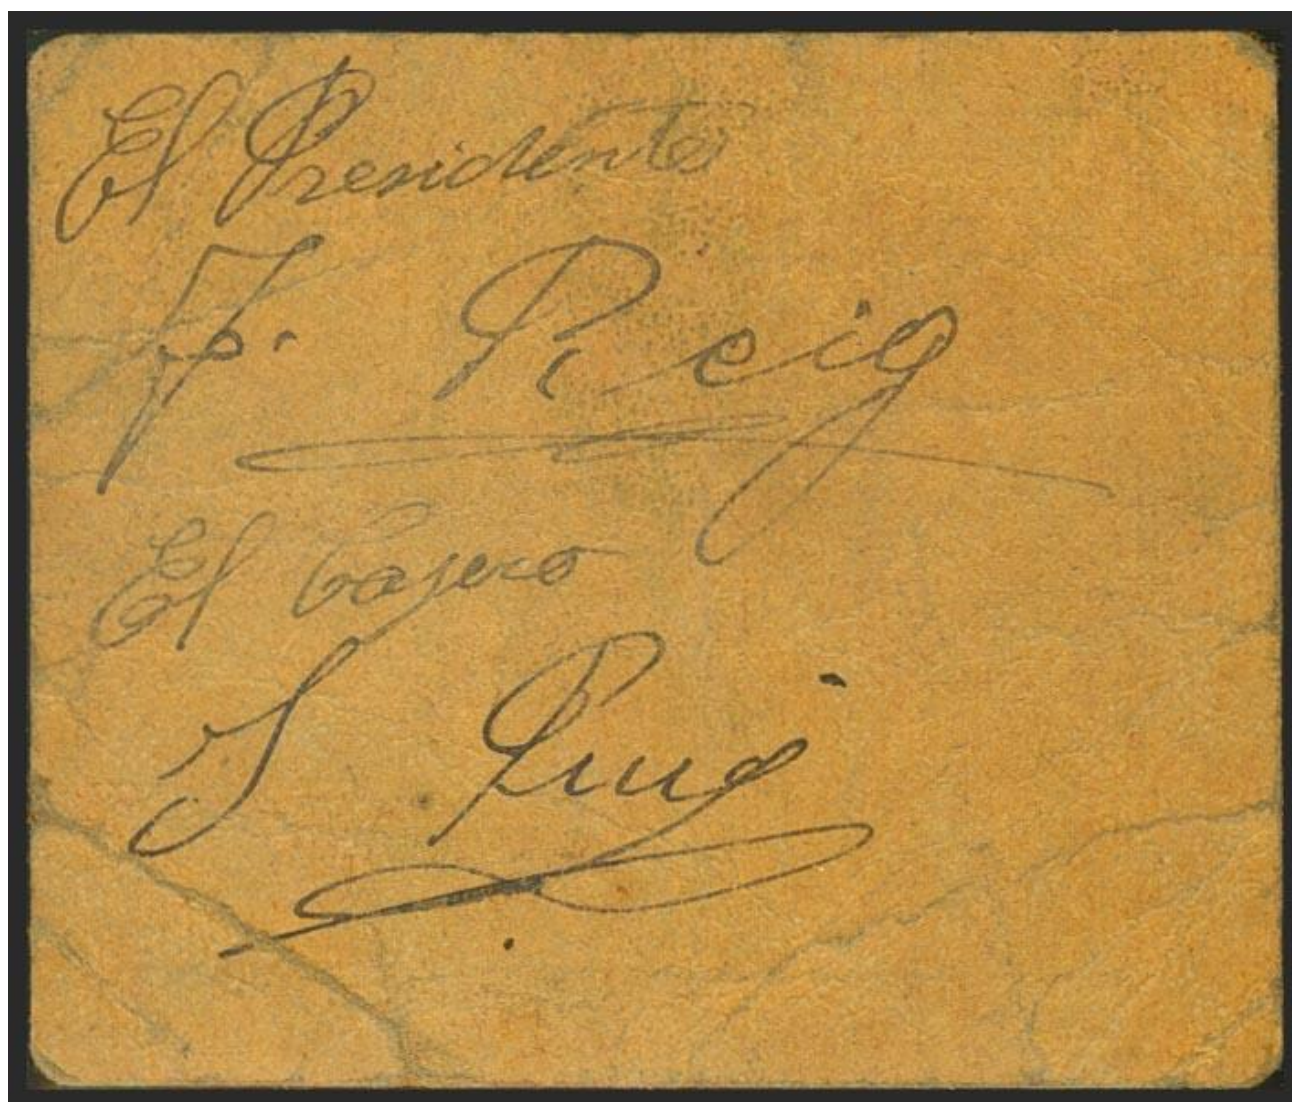 El Presidente
F. Reig
El Cajero
S. Puig